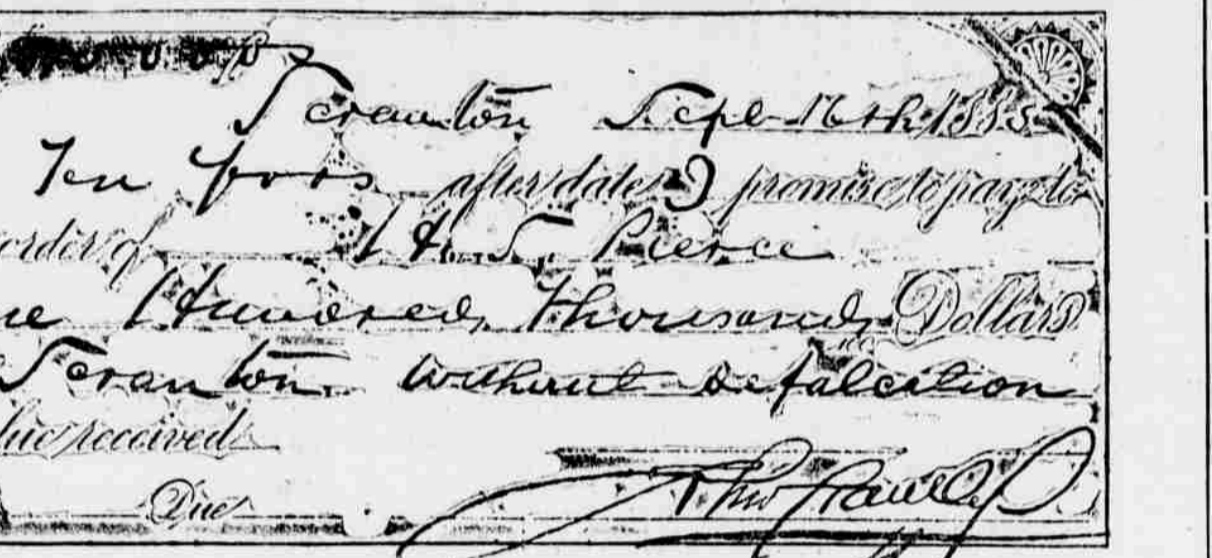 Scranton Sept 16th 1885
Ten years after date I promise to pay to
order of H. S. Pierce
ne Hundred Thousand Dollars
Scranton without defalcation
lue received
Due